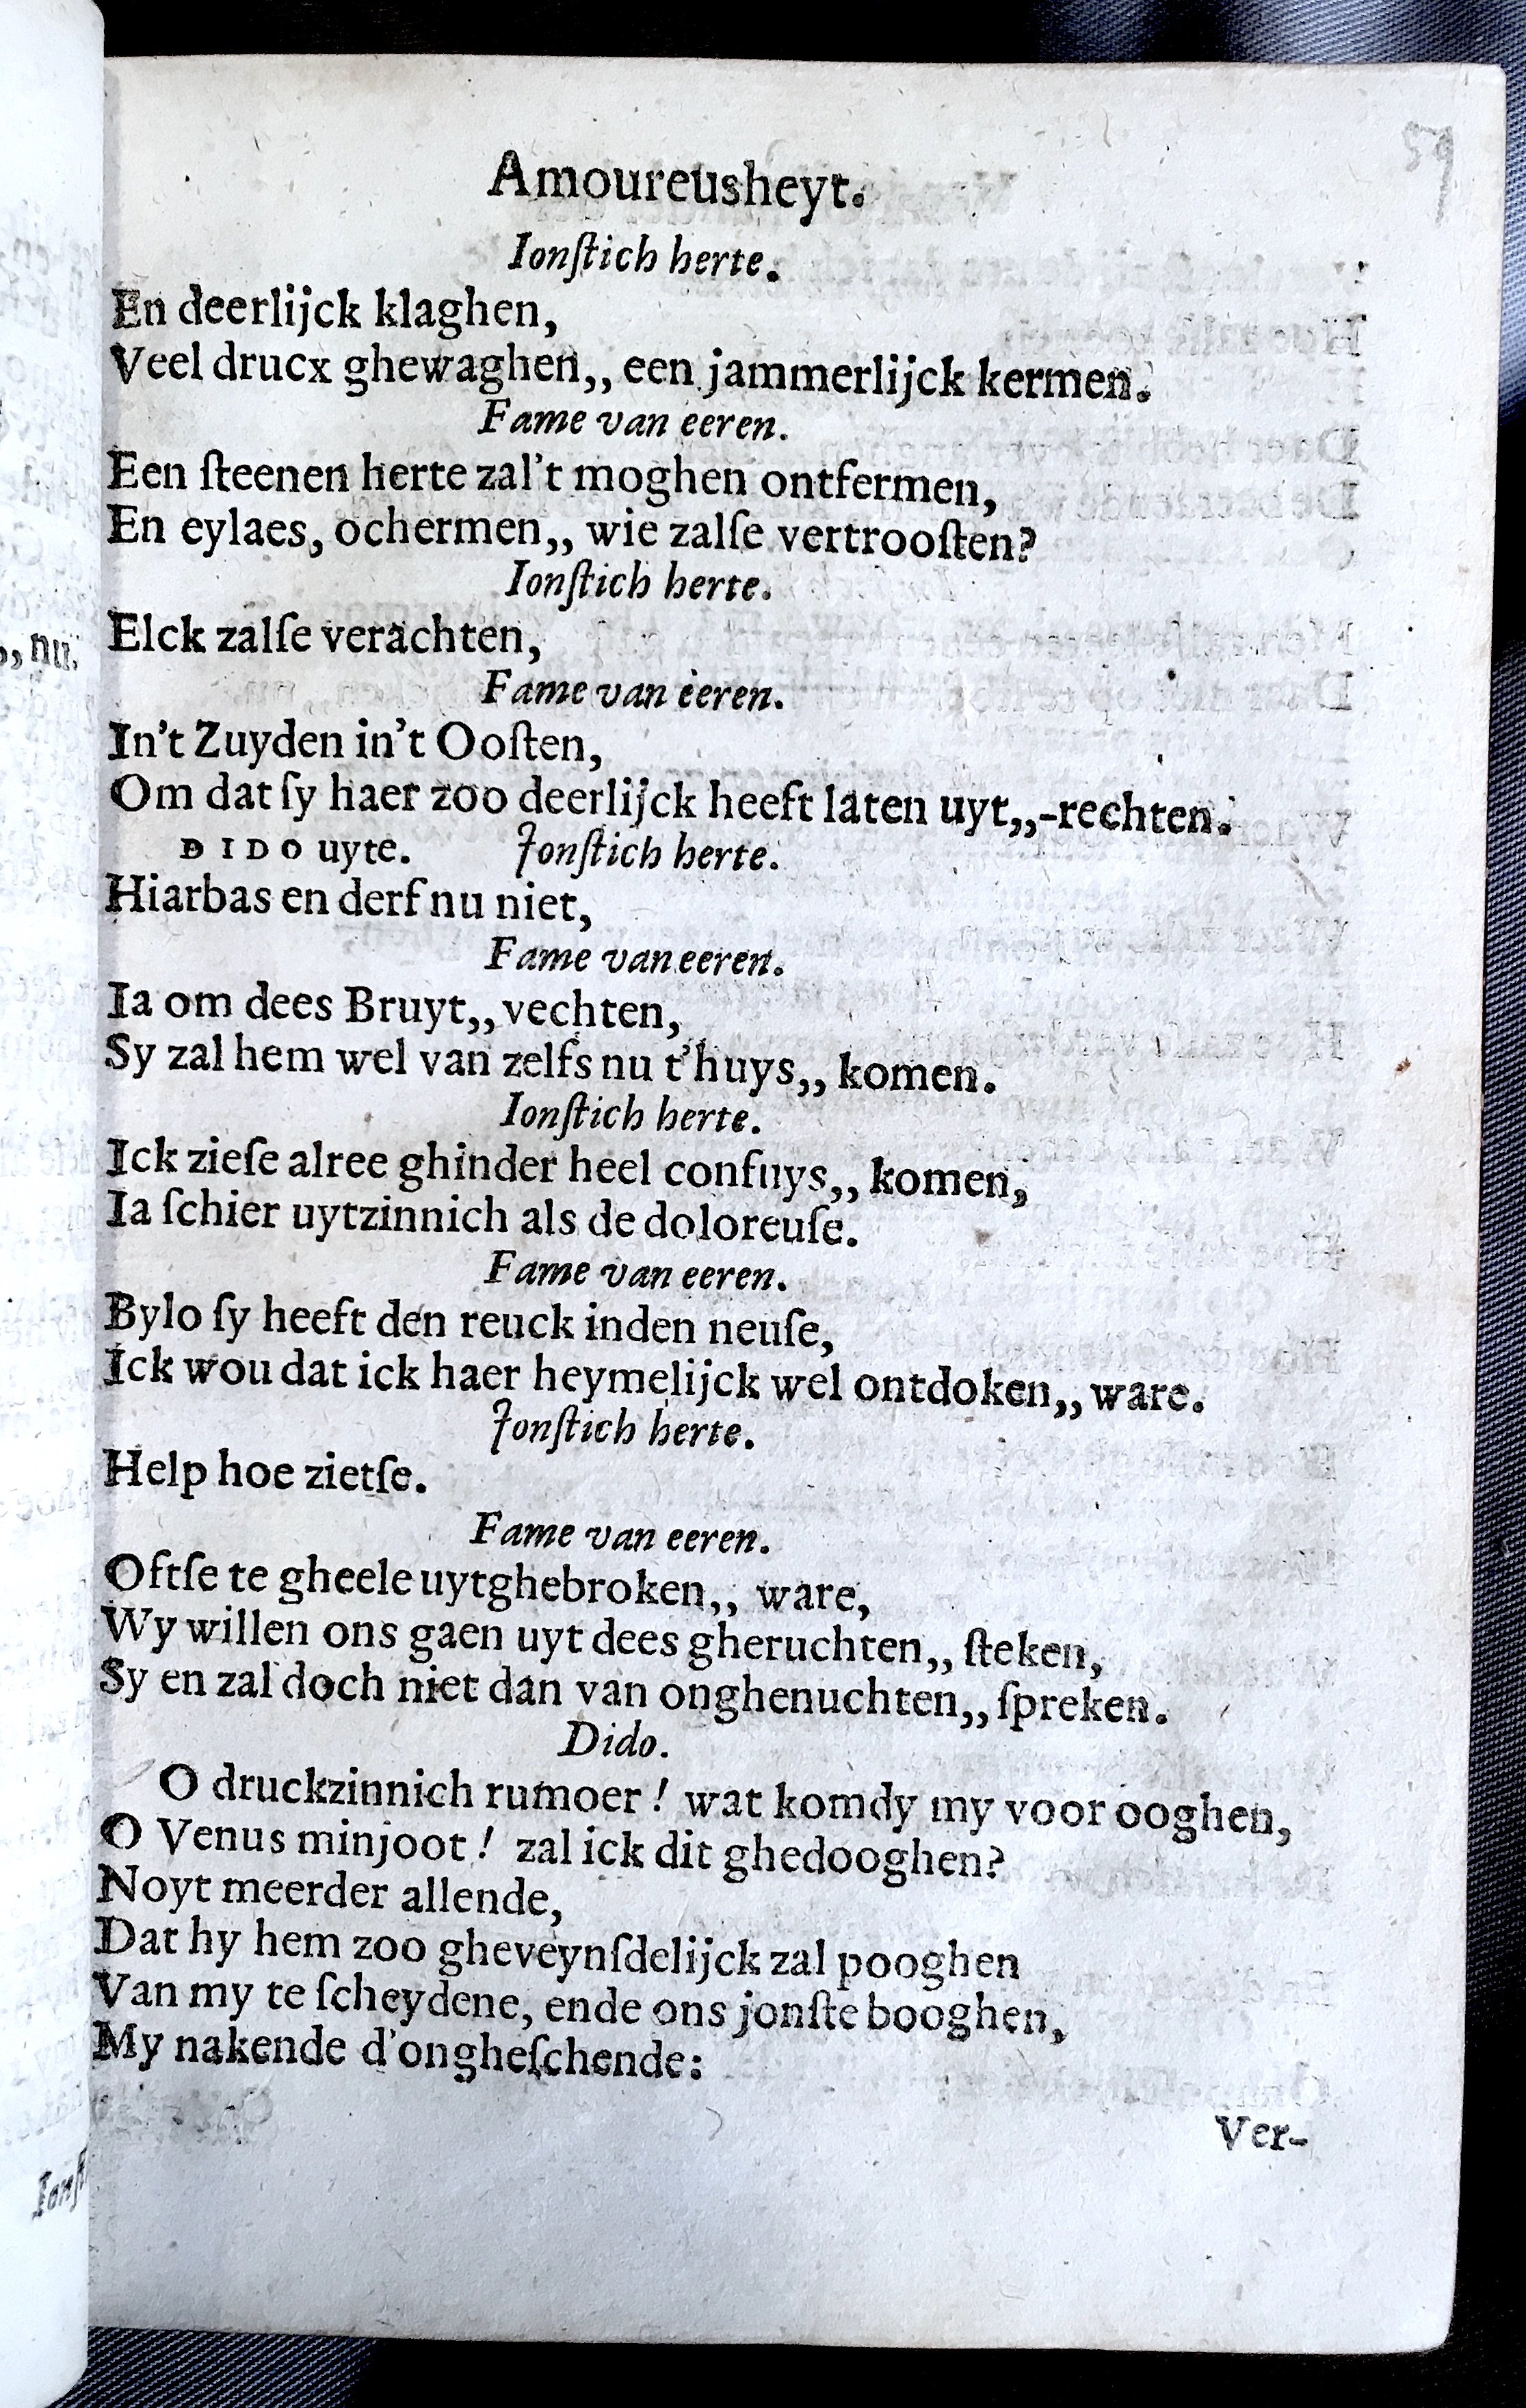 59
Amoureusheyt.
Ionſtich herte.
En deerlijck klaghen,
Veel drucx ghewaghen,, een jammerlijck kermen.
Fame van eeren.
Een ſteenen herte zal't moghen ontfermen,
En eylaes, ochermen,, wie zalſe vertrooſten?
Ionſtich herte.
Elck zalſe verachten,
Fame van eeren.
In't Zuyden in't Ooſten,
Om dat ſy haer zoo deerlijck heeft laten uyt,,-rechten.
DIDO uyte. Jonſtich herte.
Hiarbas en derf nu niet,
Fame van eeren.
Ia om dees Bruyt,, vechten,
Sy zal hem wel van zelfs nu t'huys,, komen.
Ionſtich herte.
Ick zieſe alree ghinder heel confuys,, komen,
Ia ſchier uytzinnich als de doloreuſe.
Fame van eeren.
Bylo ſy heeft den reuck inden neuſe,
Ick wou dat ick haer heymelijck wel ontdoken,, ware.
Jonſtich herte.
Help hoe zietſe.
Fame van eeren.
Oftſe te gheele uytghebroken,, ware,
Wy willen ons gaen uyt dees gheruchten,, ſteken,
Sy en zal doch niet dan van onghenuchten,, ſpreken.
Dido.
O druckzinnich rumoer! wat komdy my voor ooghen,
O Venus minjoot! zal ick dit ghedooghen?
Noyt meerder allende,
Dat hy hem zoo gheveynſdelijck zal pooghen
Van my te ſcheydene, ende ons jonſte booghen,
My nakende d'ongheſchende:
Ver-
, nu.
Ionſ